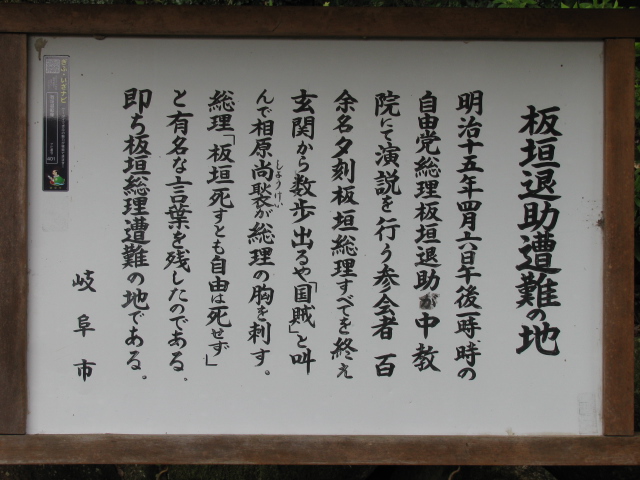 板垣退助遭難の地
明治十五年四月六日午後一時、時の
自由党総理板垣退助が中教
院にて演説を行う参会者 百
余名夕刻板垣総理すべてを終え
玄関から数歩出るや「国賊」と叫
んで相原尚褧が総理の胸を刺す。
しょうけい
総理「板垣死すとも自由は死せず」
と有名な言葉を残したのである。
即ち板垣総理遭難の地である。
岐阜市